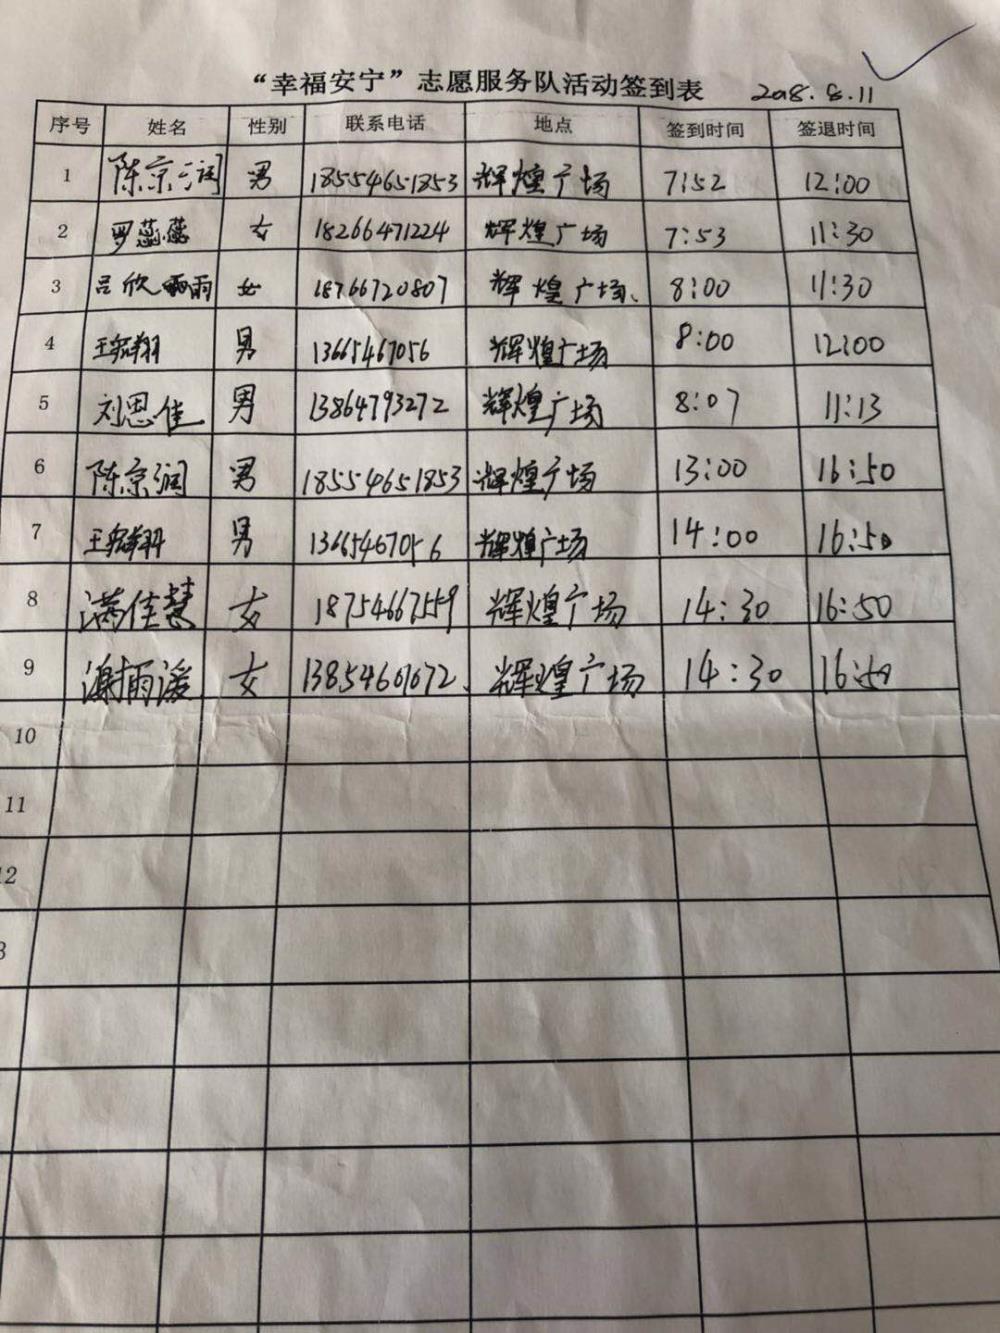 “幸福安宁”志愿服务队活动签到表 2018.8.11
序号 姓名 性别 联系电话 地点 签到时间 签退时间
1 陈京润 男 18554651853 辉煌广场 7:52 12:00
2 罗蕊蕊 女 18266471224 辉煌广场 7:53 11:30
3 吕欣雨 女 18766720807 辉煌广场、 8:00 11:30
4 男 13665467056 辉煌广场 8:00 12:00
5 刘恩佳 男 13864793272 辉煌广场 8:07 11:13
6 陈京润 男 18554651853 辉煌广场 13:00 16:50
7 男 13665467056 辉煌广场 14:00 16:50
8 满佳慧 女 18754667559 辉煌广场 14:30 16:50
9 谢雨湲 女 13854601672、 辉煌广场 14:30 16:50
10
11
12
3